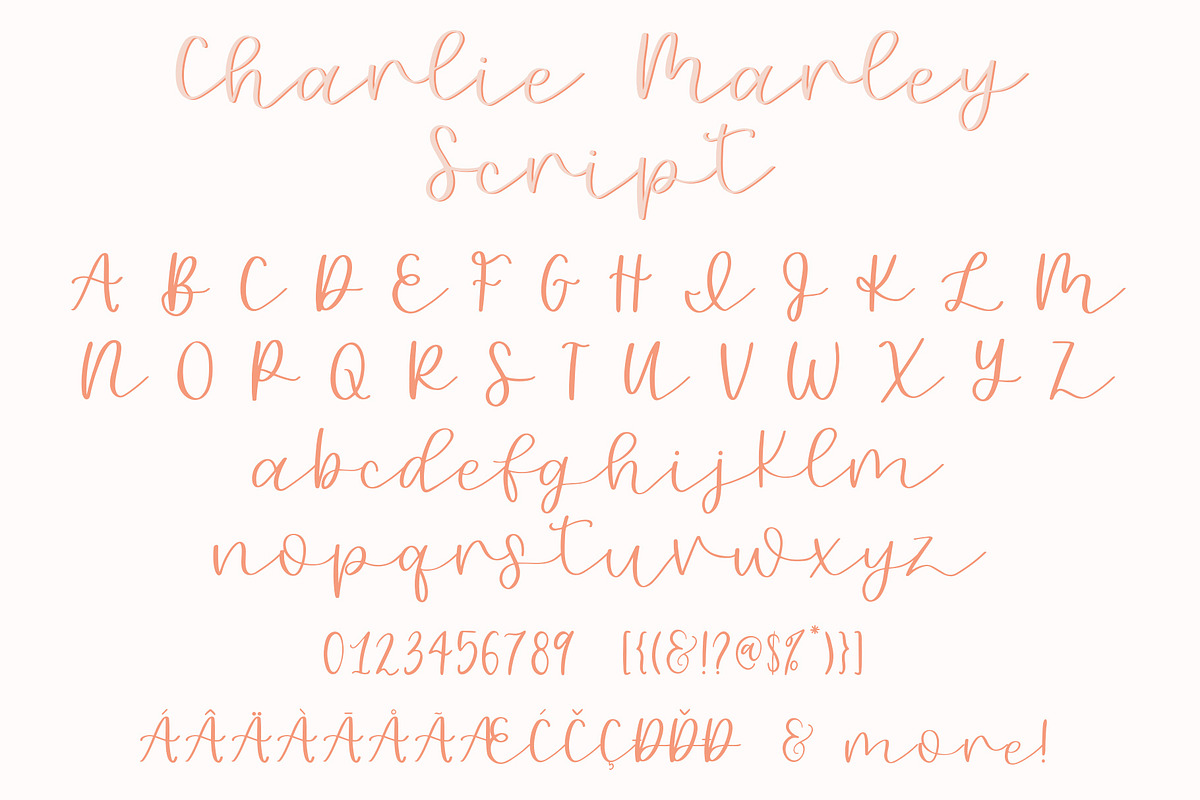 Charlie Marley
Script
A B C D E F G H I J K L M
N O P Q R S T U V W X Y Z
abcdefghijklm
nopqrstuvwxyz
0123456789 [{(&!?@$%*)}]
ÁÂÄÀĀÅÃÆĆČÇĐĎÐ & more!